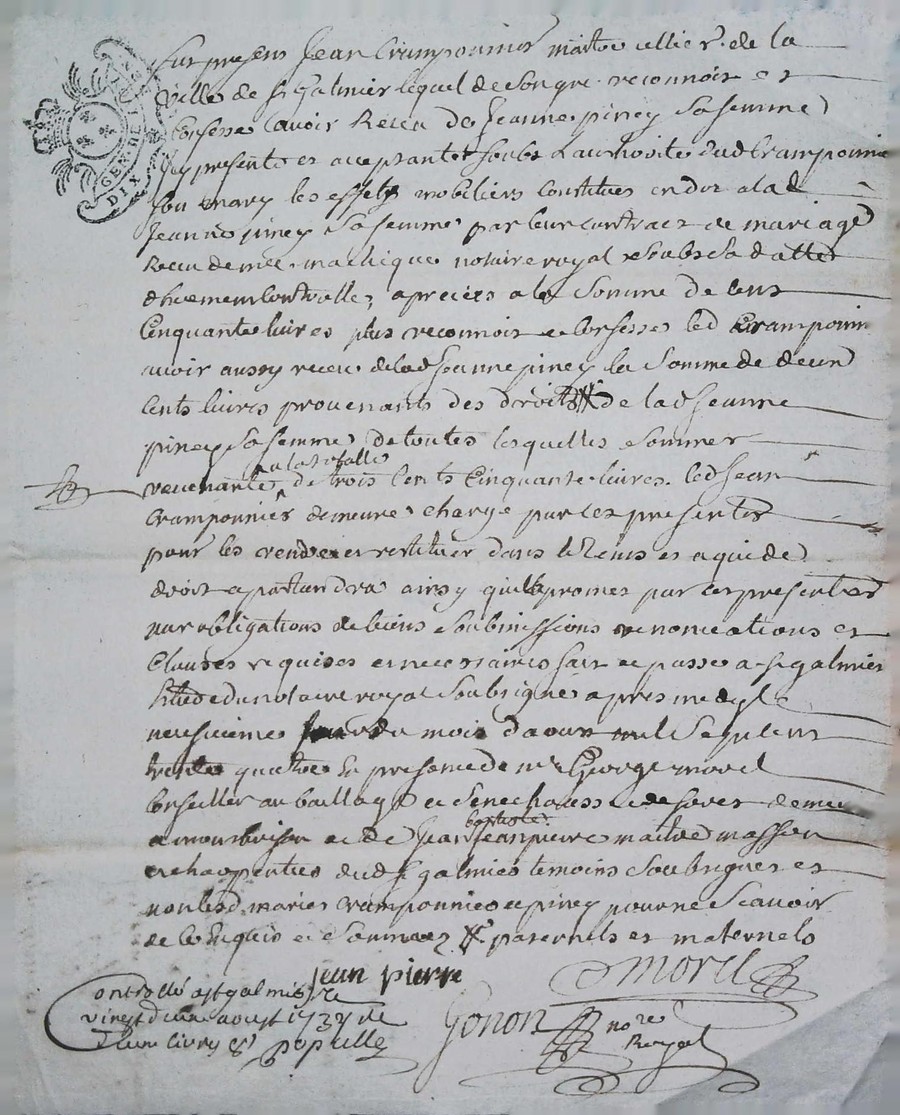 GEN DE LION
DIX
Fut present Jean Cramponnier maitre cellier de la
Ville de St Galmier lequel de son gre reconnoit et
Confesse avoir Receu de Jeanne piney Sa femme
Icy presente et acceptante soubs L'authorité dud Cramponnie
Son mary les effets mobiliers Constitues en dot a lad
Jeanne piney Sa femme par leur contract de mariage
Receu de me notaire royal Soubs Sa datte
dhuement Controllé, apreciés a la Somme de cent
Cinquante livres plus reconnoit et Confesse led Cramponni
avoir aussy receu de lad Jeanne piney la Somme de deux
cents livres provenants des droits de lad Jeanne
piney Sa femme, de toutes lesquelles Sommes
a la totalle
revenante de trois Cents Cinquante livres led Jean
Cramponnier demeure charge par ces presentes
pour les rendre et restituer dans le tems et a qui de
droit apartiendra ainsy qu'il promet par ces presentes
par obligations de biens Soubmissions renonciations et
Clauses requises et necessaires fait et passé a St galmier
Etude du notaire royal Soubsigné apres medy le
neufvieme jour du mois d'aoust mil Sept cent
trente quatre En presence de mr George morel
Conseiller au baillage et Senechaussee de forez demeu
a montbrison et de Jean
baptiste
Jean pierre maitre masson
et charpentier dud St galmier temoins Soubsignes et
non lesd maries Cramponnier et piney pour ne Scavoir
de ce Enquis et Sommez paternels et maternels
Jean pierre
Morel
Controllé a St galmier le
vingt d'une aoust 1734
une livre
Gonon
nore
Royal